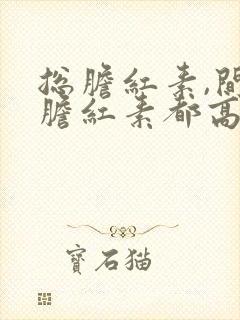 总膽紅素,間
膽紅素都高
寶石猫